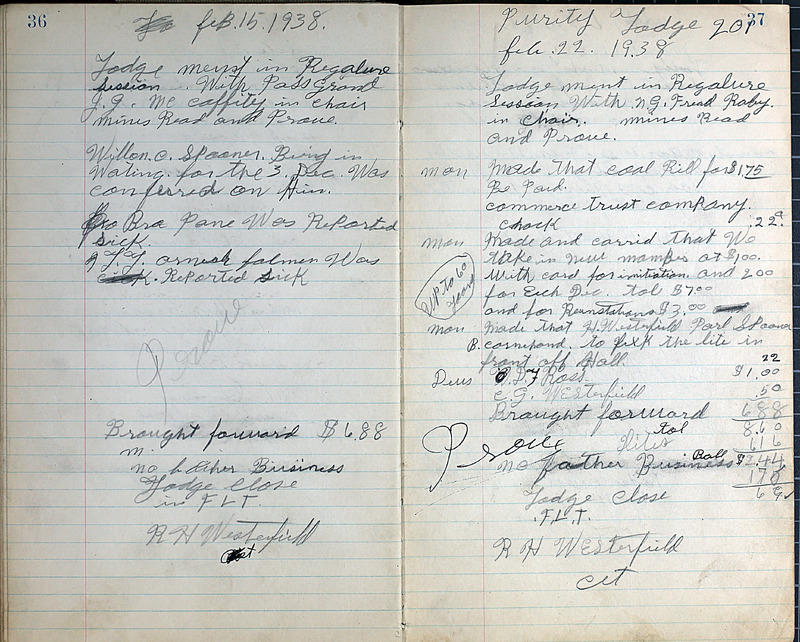 36
feb. 15. 1938.
Lodge menst in Regalure
session. With Pass Grand
J. G. Mc caffity in chair
mines Read and Prove.
Willon. C. Spooner. Being in
Wating for the 3. Dec. Was
conferred on Him.
Bra Pane Was Reported
sick.
falmen Was
Reported sick
Prove
Brought forward $6.88
m.
no Business
Lodge Close
in F L T.
R H Westerfield
37
Purity Lodge 201
feb. 22. 1938
Lodge ment in Regalure
Session With N.G. Fread Raby.
in chair. mines Read
and Prove.
mon made that coal Bill for $1.75
Be Paid.
commerce trust company.
chack .22
mon made and carrid that We
take in new mambers at $1.00.
With card for initation. and 2 00
UP to 60 years
for Each Dec. tol $7 00
and for Reinstations $3.00
mon made that H. Westerfield Parl Spooner
B. cornehand. to fixk the lite in
front off Hall. 22
Deus Ross $1.00
C. G. Westerfield .50
Brought forward 6 88
tol 8.60
Prove lites 6 16
no Business Ball $2.44
Lodge Close
F. L. T.
R H Westerfield